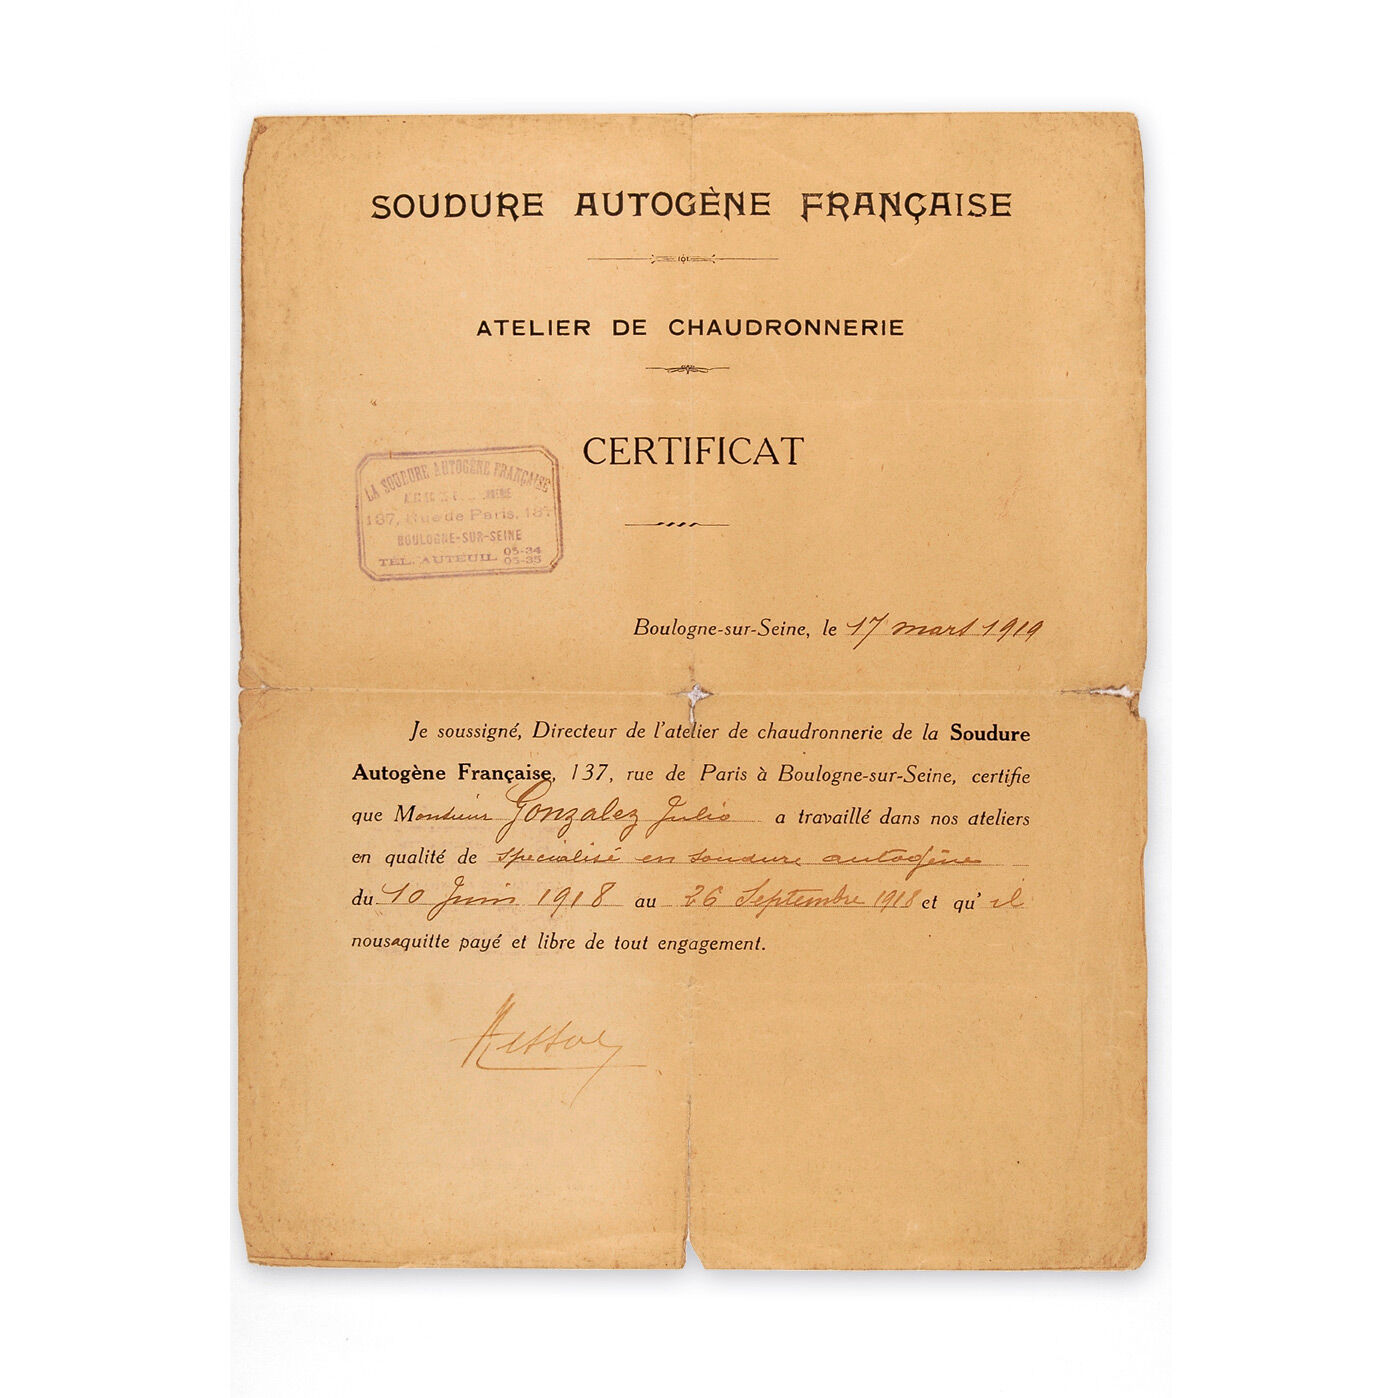 SOUDURE AUTOGÈNE FRANÇAISE
ATELIER DE CHAUDRONNERIE
CERTIFICAT
LA SOUDURE AUTOGÈNE FRANÇAISE
137, Rue de Paris, 137
BOULOGNE-SUR-SEINE
TÉL. AUTEUIL 05-34
05-35
Boulogne-sur-Seine, le 17 mars 1919
Je soussigné, Directeur de l'atelier de chaudronnerie de la Soudure
Autogène Française, 137, rue de Paris à Boulogne-sur-Seine, certifie
que Monsieur Gonzalez Julio a travaillé dans nos ateliers
en qualité de spécialisé en soudure autogène
du 10 Juin 1918 au 26 Septembre 1918 et qu' il
nous a quitte payé et libre de tout engagement.